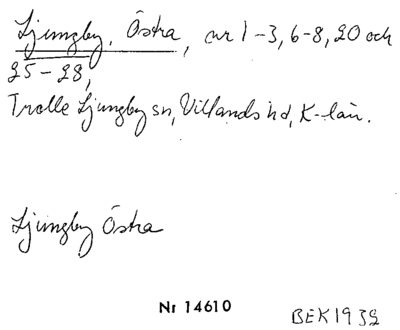 Ljungby, Östra, nr 1-3, 6-8, 20 och
25-28,
Trolle Ljungby sn, Villands hd, K-län.
Ljungby Östra
Nr 14610
BEK 1939